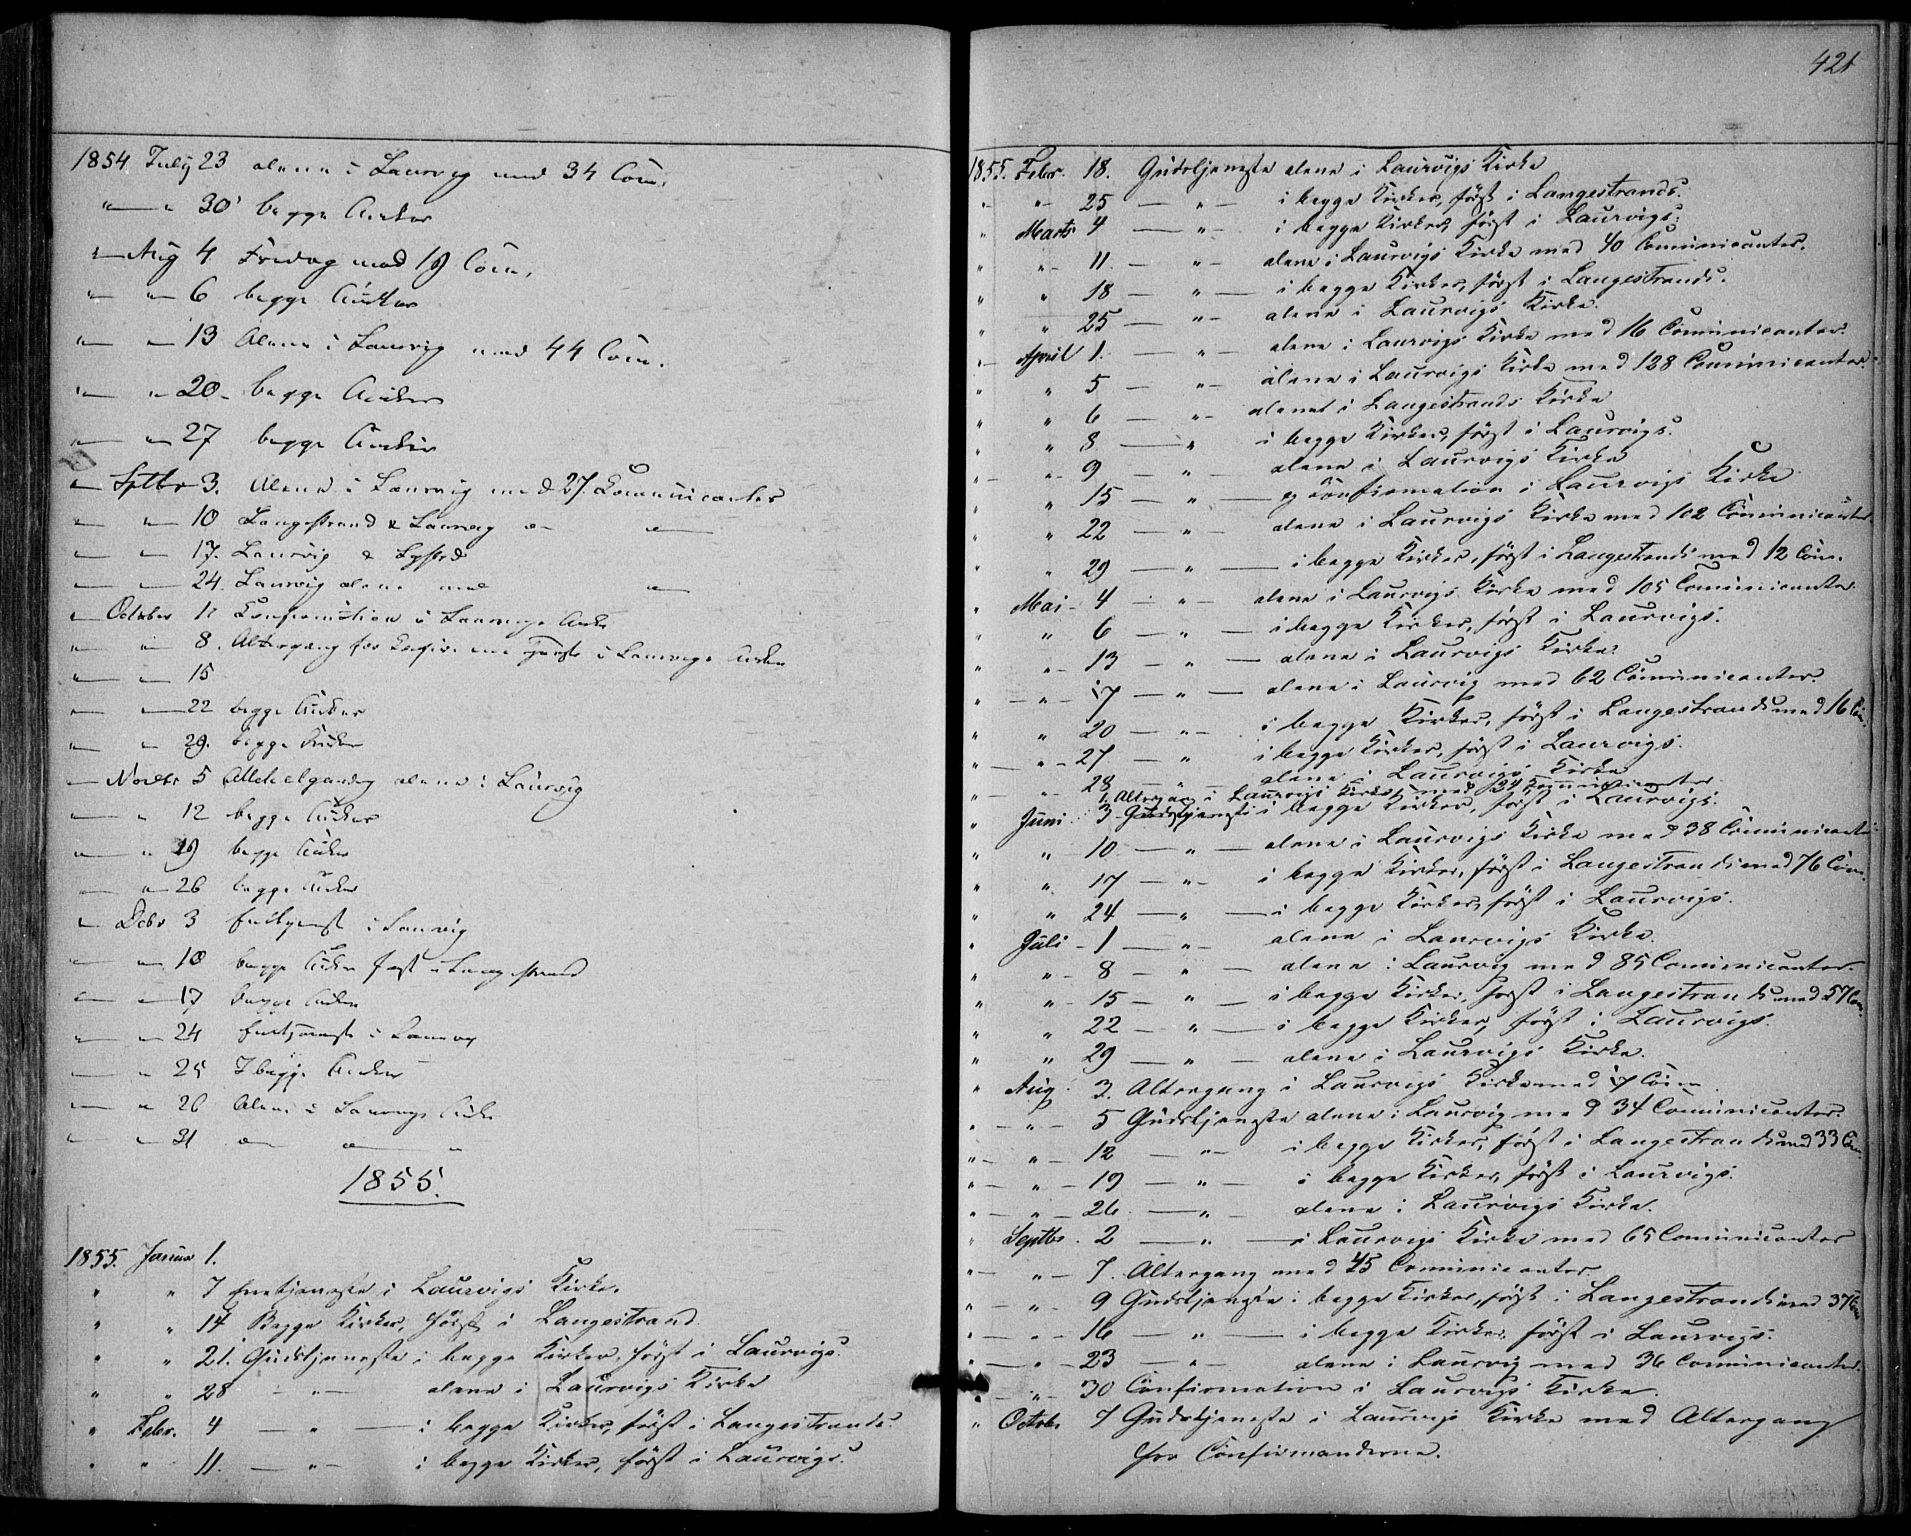 1854 July 23 alene i Laurvig med 34 Com.
" — " 30 begge Kirker
" — Aug 4 Fredag med 19 Com.
" — " — 6 begge Kirker
" — " — 13 Alene i Laurvig med 44 Com.
" — " — 20 - begge Kirker
" — " — 27 begge Kirker
" — Septbr 3. Alene i Laurvig med 27 Communicanter
" — " — 10 Langestrand & Laurvig
" — " — 17. Laurvig &
" — " — 24. Laurvig alene med
" — October 1 Confirmation i Laurvigs Kirke
" — " 8. Altergang for i Laurvigs Kirke
" — " — 15
" — " — 22 begge Kirker
" — " 29. begge Kirker
" — Novbr 5 Allehelgensdag alene i Laurvig
" — " 12 begge Kirker
" — " 19 begge Kirker
" — " 26 begge Kirker
" — Debr 3 Enetjenest i Laurvig
" — " — 10 begge Kirker først i Langestrand
" — " — 17 begge Kirker
" — " — 24 Enetjeneste i Laurvig
" — " 25 I begge Kirker
" — " 26 Alene i Laurvigs Kirke
" — " — 31 " — " — "
1855.
1855. Januar 1.
" " 7 Enetjeneste i Laurvigs Kirke.
" " 14 Begge Kirker, først i Langestrand
" " 21. Gudstjeneste i begge Kirker, først i Laurvigs.
" " 28 — " — alene i Laurvigs Kirke
" Febr. 4 — " — i begge Kirker, først i Langestrands.
" " 11. — " — i begge Kirker, først i Laurvigs.
421
1855. Febr. 18. Gudstjeneste alene i Laurvigs Kirke
" " - 25 — " — i begge Kirker, først i Langestrands.
" Marts 4 — " — i begge Kirker, først i Laurvigs.
" " - 11. — " - alene i Laurvigs Kirke med 40 Communicanter.
" " 18 — " — i begge Kirker, først i Langestrands.
" " 25 — " - alene i Laurvigs Kirke.
" - April 1. — " - alene i Laurvigs Kirke med 16 Communicanter.
" " 5 — " - alene i Laurvigs Kirke med 128 Communicanter.
" " 6 — " - alene i Langestrands Kirke
" " 8 — " i begge Kirker, først i Laurvigs.
" - " - 9 — " - alene i Laurvigs Kirke
" " 15 — " — Confirmation i Laurvigs Kirke
" " 22 — " - alene i Laurvigs Kirke med 102 Communicanter.
" " 29 — " — i begge Kirker, først i Langestrands med 12 Com.
" Mai - 4 — " - alene i Laurvigs Kirke med 105 Communicanter.
" " 6 — " — i begge Kirker, først i Laurvigs.
" " - 13 — " — alene i Laurvigs Kirke.
" - " - 17 — " — alene i Laurvig med 62 Communicanter.
" " 20 — " - i begge Kirker, først i Langestrands med 16 Com.
" — " - 27 — " i begge Kirker, først i Laurvigs.
" — " - 28 — " - alene i Laurvigs Kirke
1. Altergang i Laurvigs Kirke med 32 Communicanter.
" Juni 3 Gudstjeneste i begge Kirker, først i Laurvigs.
" " 10 — " — alene i Laurvigs Kirke med 38 Communicanter
" " 17 — " - i begge Kirker, først i Langestrands med 76 Com.
" " 24 — " — i begge Kirker, først i Laurvigs.
" Juli - 1 — " - alene i Laurvigs Kirke.
" " - 8 — " — alene i Laurvig med 85 Communicanter.
" " - 15 — " — i begge Kirker, først i Langestrands med 57 Com.
" " 22 — " — i begge Kirker, først i Laurvigs.
" " 29 — " — alene i Laurvigs Kirke.
" Aug. 3. Altergang i Laurvigs Kirke med 17 Com
" - " - 5 Gudstjeneste alene i Laurvig med 34 Communicanter.
" - " - 12 — " - i begge Kirker, først i Langestrands med 33 Com.
" - " - 19 — " — i begge Kirker, først i Laurvigs.
" - " - 26 — " - alene i Laurvigs Kirke.
" Septbr. 2 — " — i Laurvigs Kirke med 65 Communicanter
" - " - 7. Altergang med 45 Communicanter
" - " - 9 Gudstjeneste i begge Kirker, først i Langestrands med 37 Com
" - " - 16 — " — i begge Kirker, først i Laurvigs.
" — " - 23 — " - alene i Laurvig med 36 Communicanter.
" - " - 30 Confirmation i Laurvigs Kirke.
" Octob. 7 Gudstjeneste i Laurvigs Kirke med Altergang
for Confirmanderne.